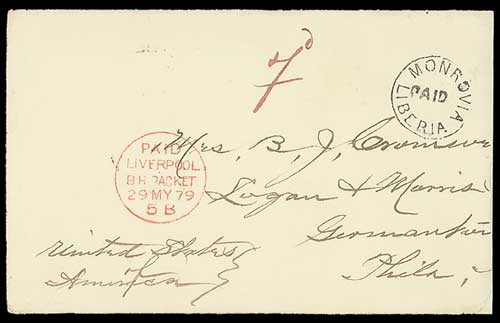 7d
MONROVIA
PAID
LIBERIA
PAID
LIVERPOOL
BR PACKET
29 MY 79
5 B
Mrs. B. J.
Logan & Morris
Germantown
Phila,
United States
America